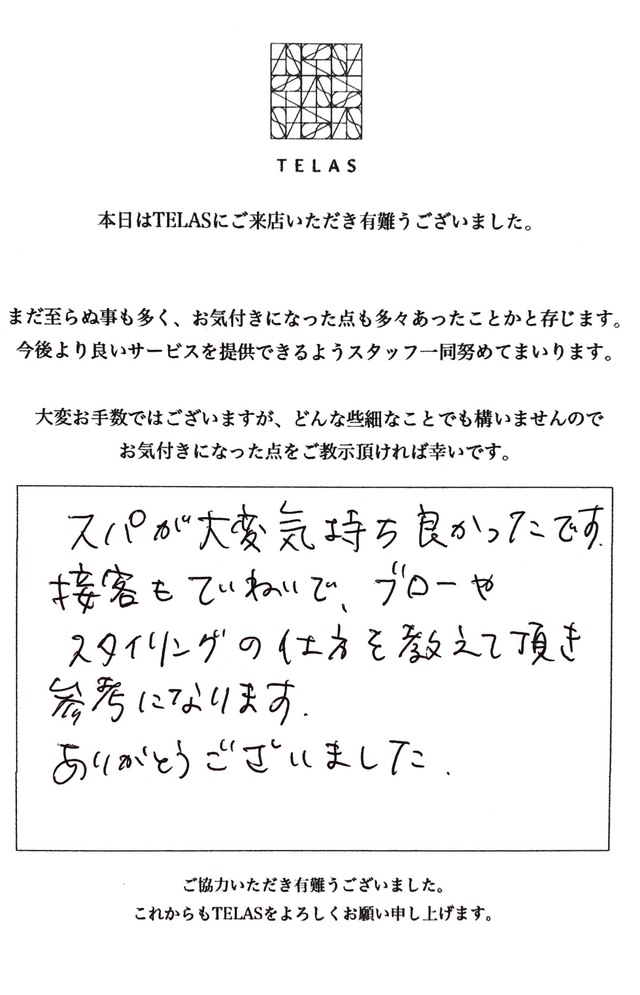 TELAS
本日はTELASにご来店いただき有難うございました。
まだ至らぬ事も多く、お気付きになった点も多々あったことかと存じます。
今後より良いサービスを提供できるようスタッフ一同努めてまいります。
大変お手数ではございますが、どんな些細なことでも構いませんので
お気付きになった点をご教示頂ければ幸いです。
スパが大変気持ち良かったです.
接客もていねいで、ブローや
スタイリングの仕方を教えて頂き
参考になります.
ありがとうございました.
ご協力いただき有難うございました。
これからもTELASをよろしくお願い申し上げます。